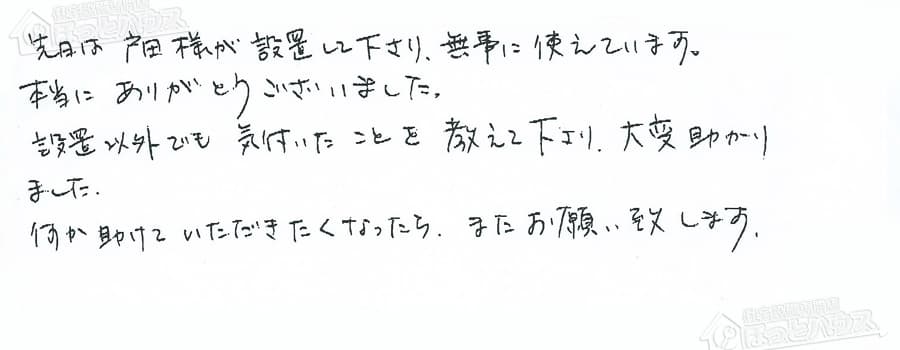 先日は戸田様が設置して下さり、無事に使えています。
本当にありがとうございいました。
設置以外でも気付いたことを教えて下さり、大変助かり
ました。
何か助けていただきたくなったら、またお願い致します。
住宅設備専門店
ほっとハウス
住宅設備専門店
ほっとハウス